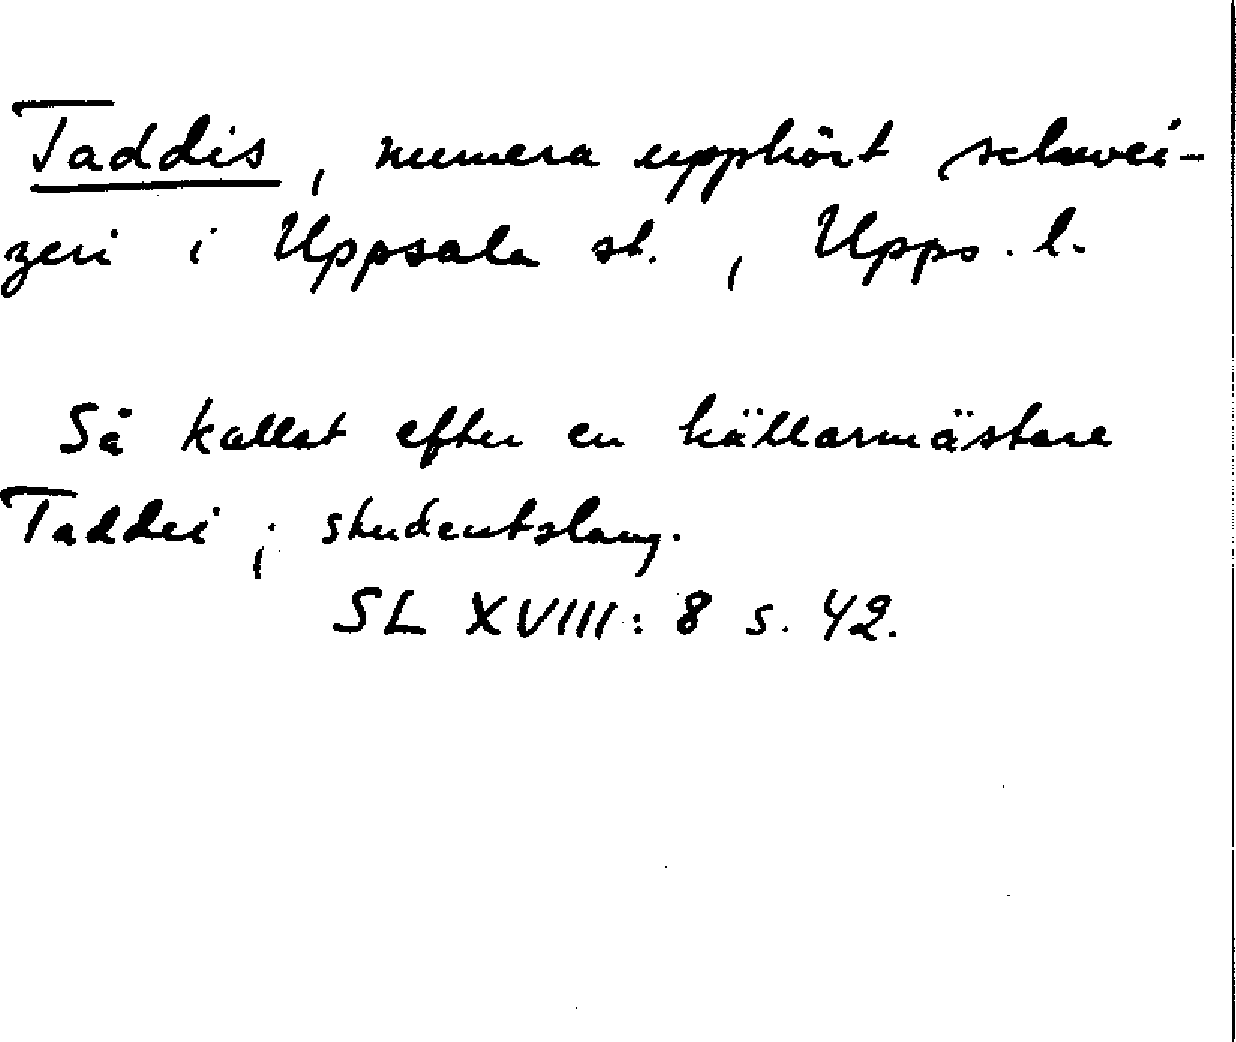 Taddis, numera upphört schwei-
zeri i Uppsala st., Upps. l.
Så kallat efter en källarmästare
Taddei; studentslang.
SL XVIII: 8 s. 42.